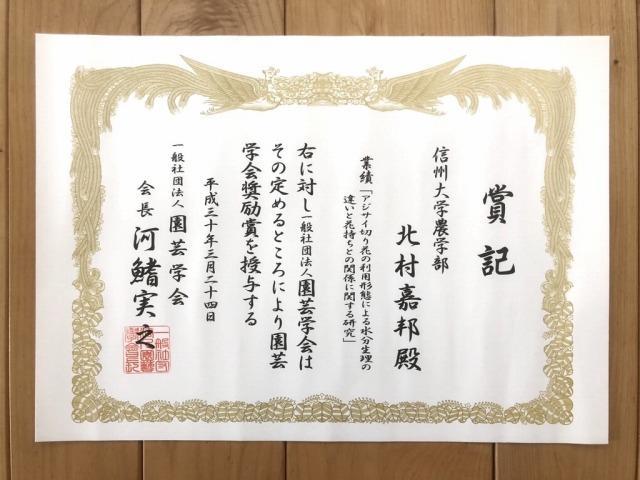 賞記
信州大学農学部
北村嘉邦殿
業績「アジサイ切り花の利用形態による水分生理の
違いと花持ちとの関係に関する研究」
右に対し一般社団法人園芸学会は
その定めるところにより園芸
学会奨励賞を授与する
平成三十年三月二十四日
一般社団法人 園芸学会
会長 河鰭実之